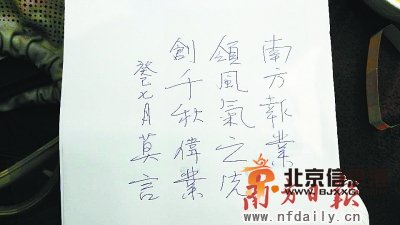 南方報業
領風氣之先
創千秋偉業
癸巳七月莫言
北京信
WWW.BJXX
南方日報
www.nfdaily.cn